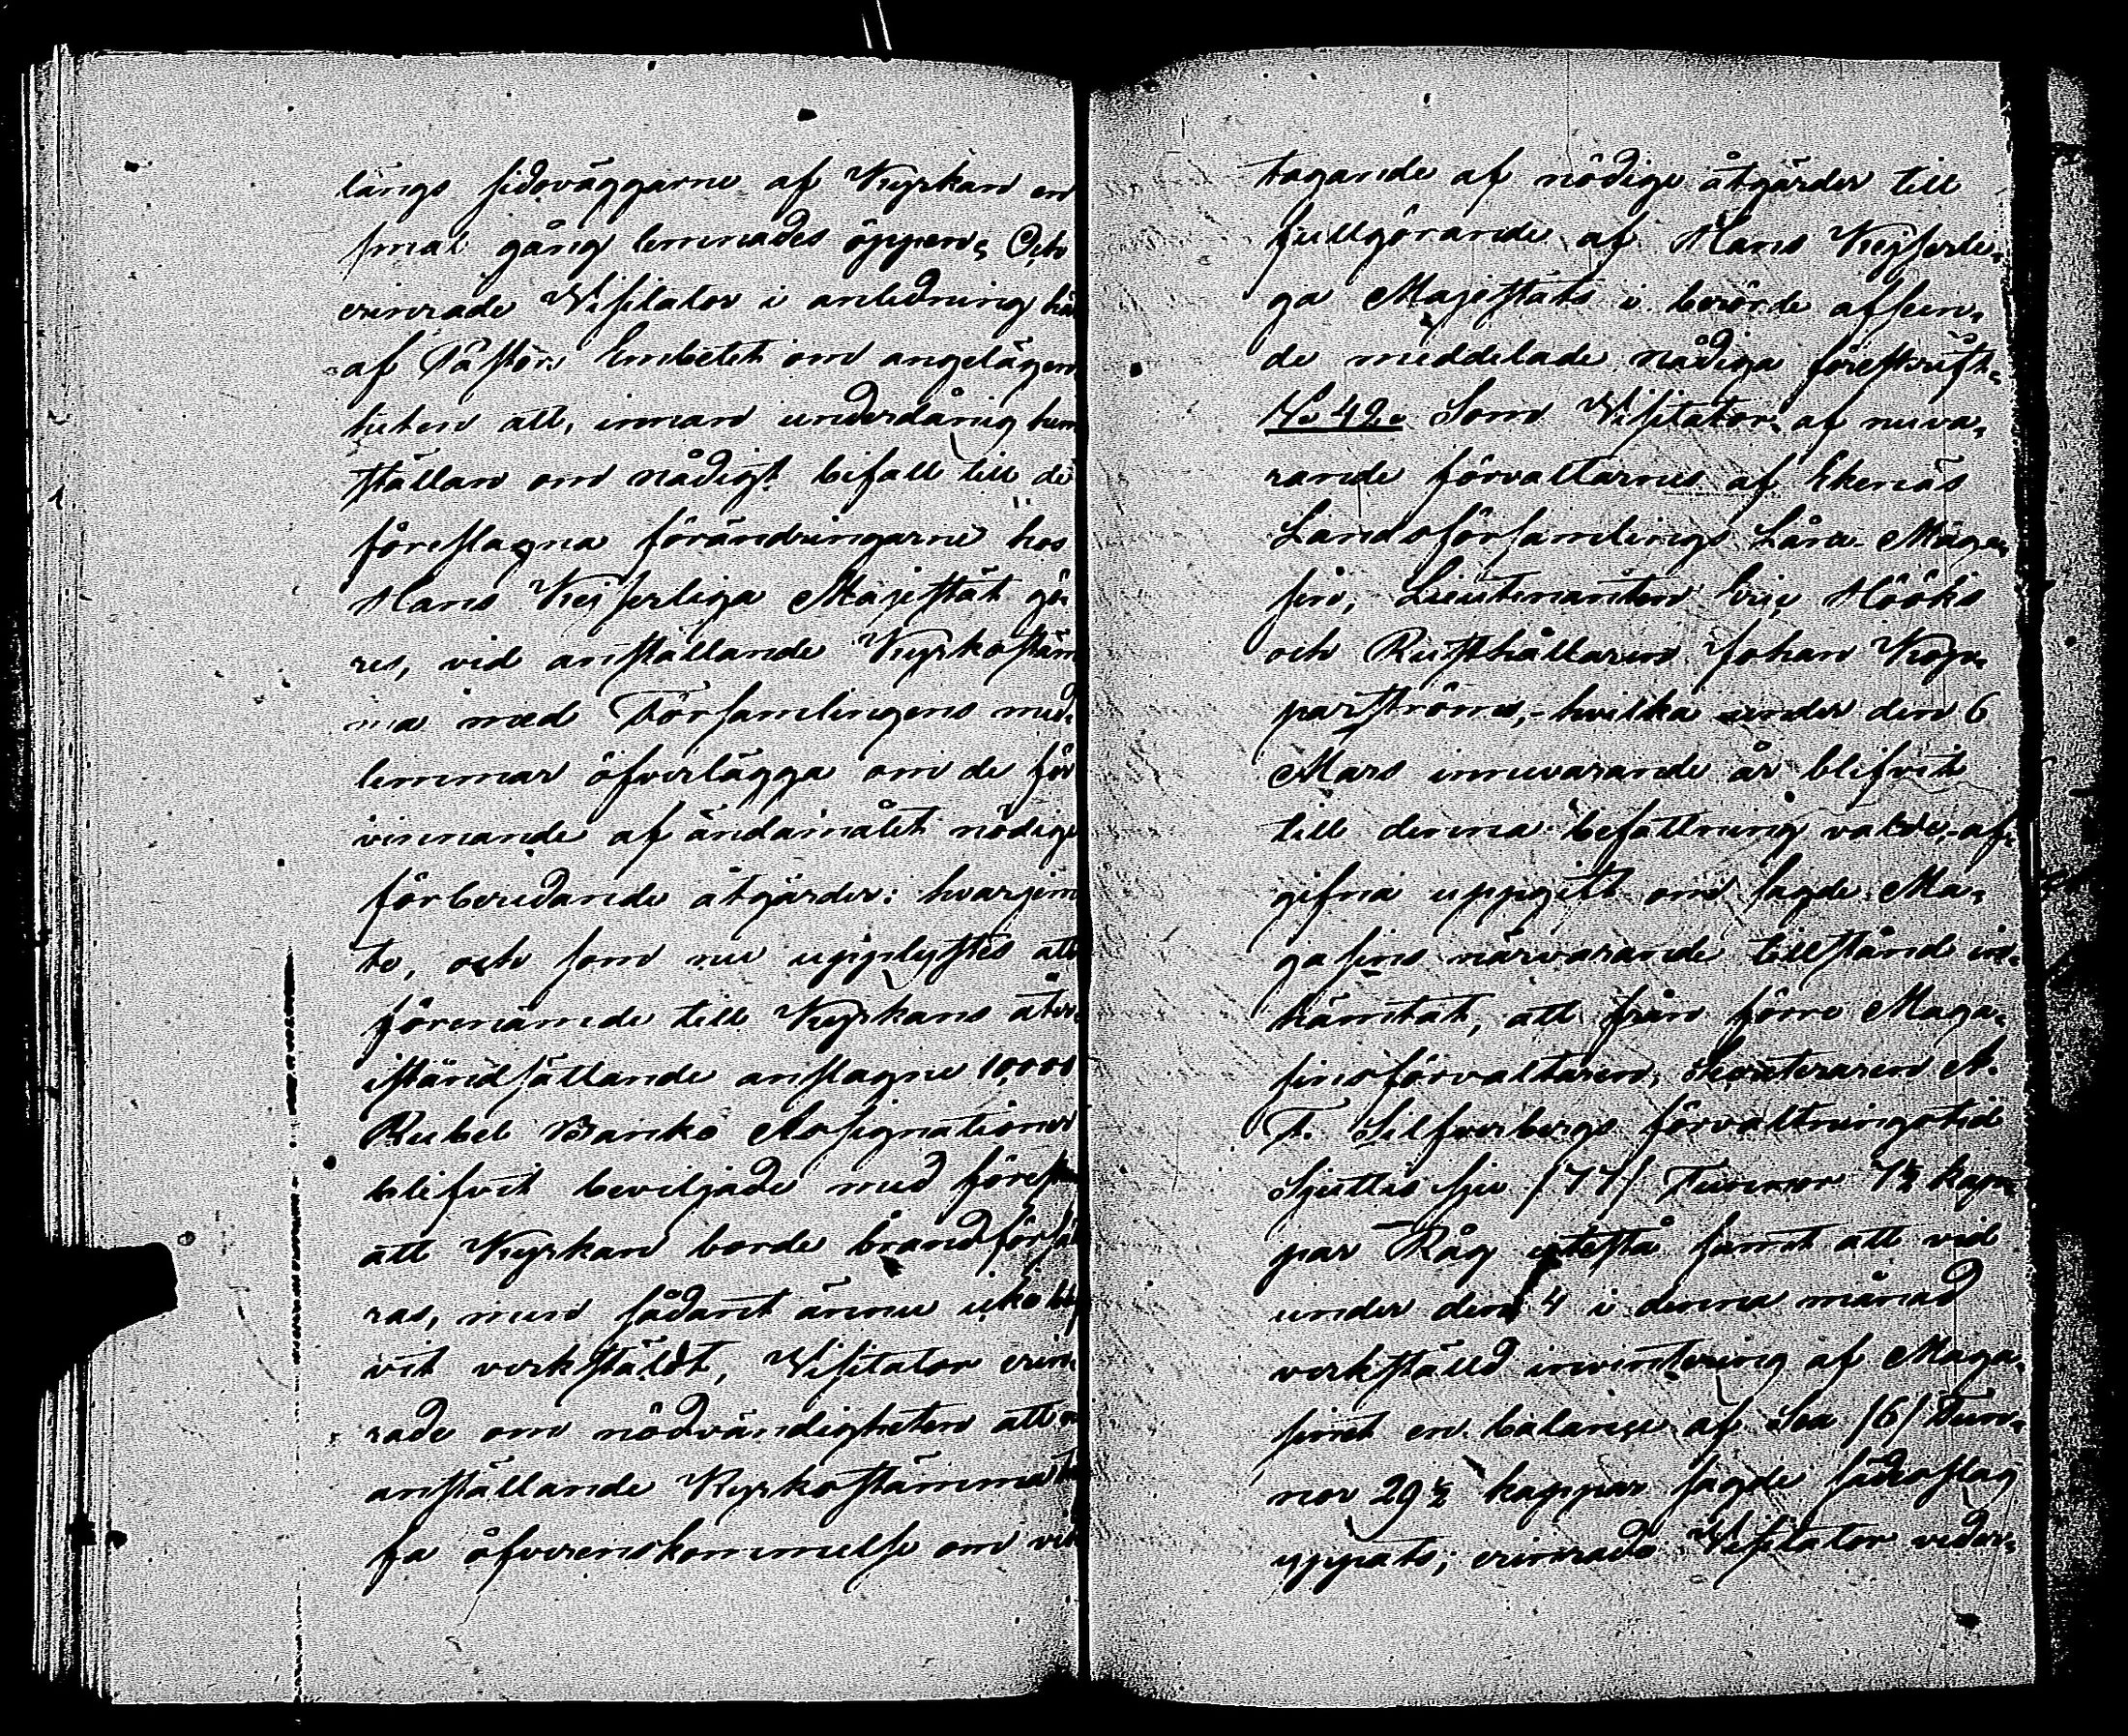 längs sidoväggarne af Kyrkan en
smal gång lemnades öppen; Och
erinrade Visitator i anledning här
af Pastors Embetet om angelägen
heten att, innan underdånig hem
ställan om nådigt bifall till de
föreslagna förändringarne hos
Hans Kejserliga Majestät gö-
res, vid anställande Kyrkostäm
ma med Församlingens med-
lemmar öfverlägga om de för
vinnande af ändamålet nödige
förberedande åtgärder: hvarjem
te, och som nu upplystes att
förenämde till Kyrkans åter-
iståndsättande anslagne 10,000
Rubel Banko Assignationer
blifvit beviljade medföresk
att Kyrkan borde brandförsäk
ras, men sådant ännu icke blif
vit verkställdt, Visitator erin-
rade om nödvändigheten att
anställande Kyrkostämma
fa öfverenskommelse om vid
tagande af nödige åtgärder till
fullgörande af Hans Kejserli-
ga Majestäts i berörde afseen-
de meddelade nådiga föreskrift.
No 42. Som Visitator af nuva-
rande förvaltarne af Ekenäs
Landsförsamlings Låne-Maga-
sin, Lieutenanten Eric Hööks
och Rusthållaren Johan Kop-
parströms, hvilka under den 6
Mars innevarande år blifvit
till denna befattning valde, af-
gifna uppgift om sagde Ma-
gasins närvarande tillstånd in-
hämtat, att från förre Maga-
sinsförvaltaren, Secreteraren A.
F. Silfverbergs förvaltningstid
Sjuttio sju /77/ Tunnor 7½ kap-
par Råg utestå samt att vid
under den 4 i denna månad
verkställd inventering af Maga-
sinet en balance af Sex /6/ Tun-
nor 29½ kappar sagde sädesslag
yppats; erinrade Visitator veder-